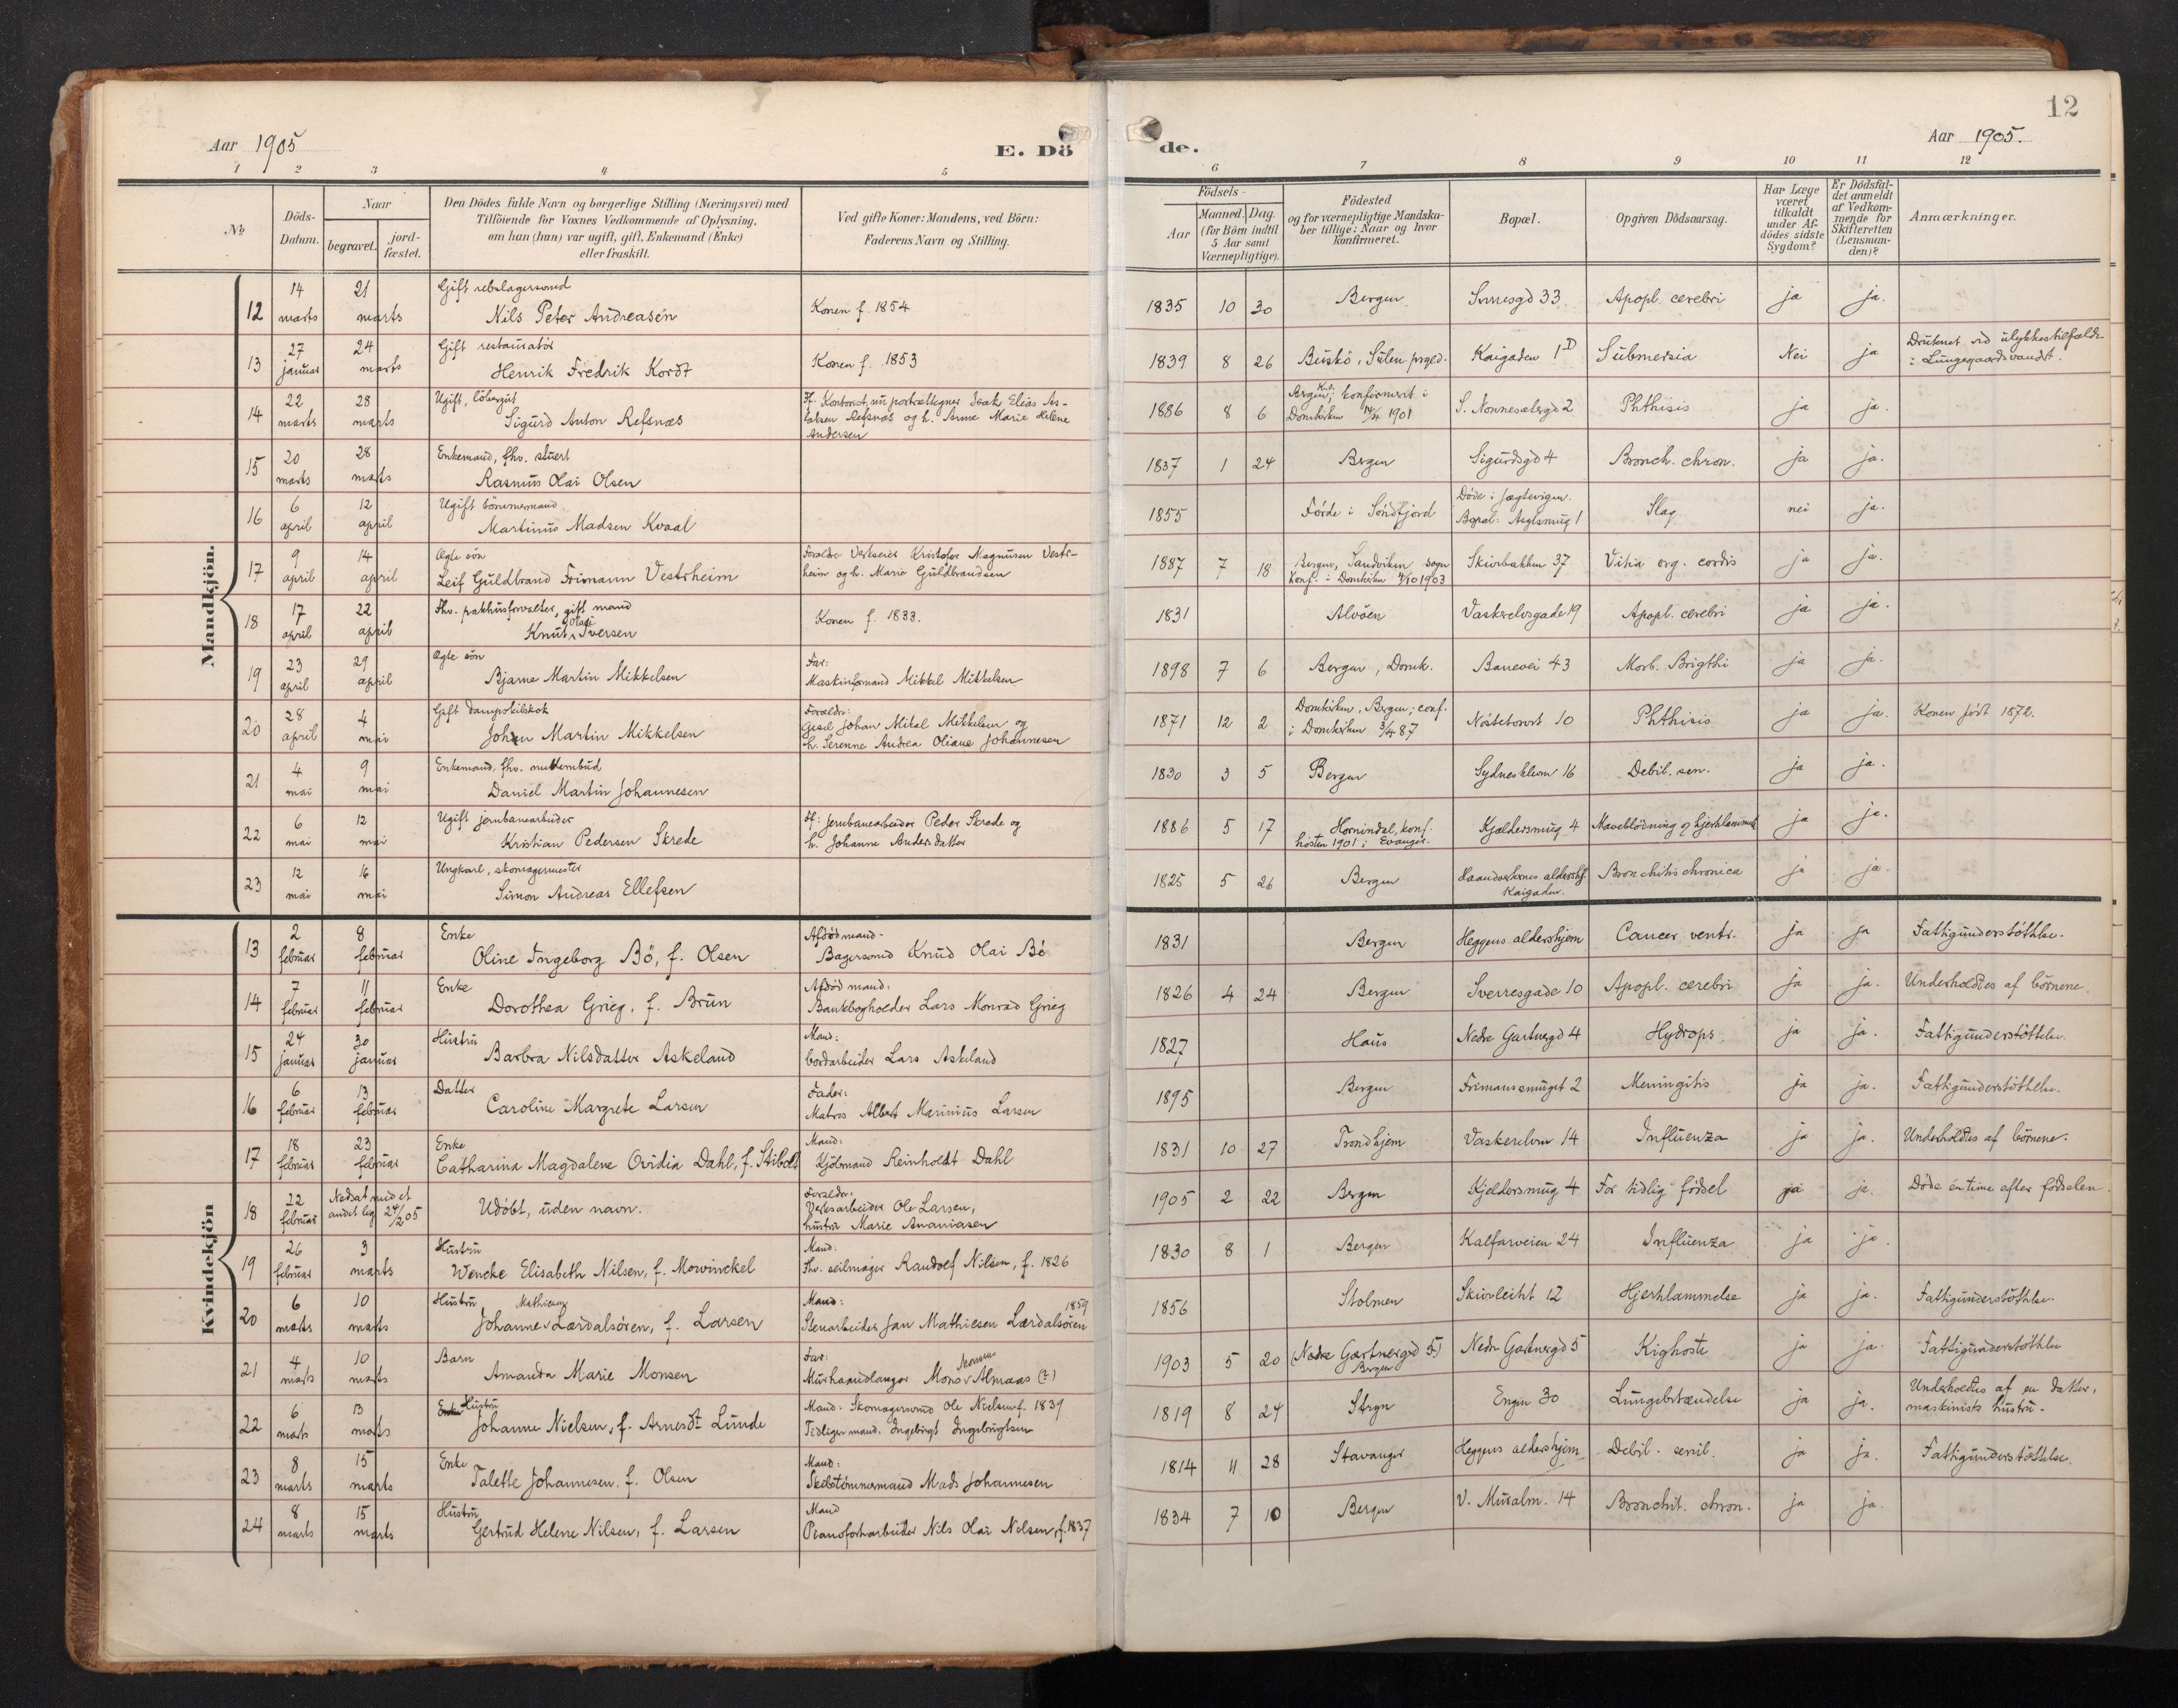 12
Aar 1905
E. Dö
de.
Aar 1905.
1 2 3 4 5 6 7 8 9 10 11 12
№
Döds-
Datum.
Naar
begravet.
jord-
fæstet.
Den Dödes fulde Navn og borgerlige Stilling (Næringsvei) med
Tilföiende for Voxnes Vedkommende af Oplysning,
om han (hun) var ugift, gift, Enkemand (Enke)
eller fraskilt.
Ved gifte Koner: Mandens, ved Börn:
Faderens Navn og Stilling.
Födsels-
Aar
Maaned. Dag.
(for Börn indtil
5 Aar samt
Værnepligtige).
Födested
og for værnepligtige Mandska-
ber tillige: Naar og hvor
konfirmeret.
Bopæl.
Opgiven Dödsaarsag.
Har Læge
været
tilkaldt
under Af-
dödes sidste
Sygdom?
Er Dödsfal-
det anmeldt
af Vedkom-
mende for
Skifteretten
(Lensman-
den)?
Anmærkninger.
Mandkjön.
12 14 marts 21 marts Gift rebslagersvend
Nils Peter Andreasen Konen f. 1854 1835 10 30 Bergen Apopl. cerebri ja ja.
13 27 januar 24 marts Gift restauratör
Henrik Fredrik Kordt Konen f. 1853 1839 8 26 Buskö, Sulen prgld. Kaigaden 1D Submersia Nei ja Druknet ved ulykkestilfælde
i Lungegaardsvandet.
14 22 marts 28 marts Ugift, löbergut
Sigurd Anton Refsnæs
Kontorist, nu portrættegner Isak Elias Isaksen Refsnæs og h. Anne Marie Helene
Andersen 1886 8 6 Bergen, konfirmert i
Domkirken 1901 S. Nonnesætergd 2 Phthisis ja ja.
15 20 marts 28 marts Enkemand, fhv. stuert
Rasmus Olai Olsen 1837 1 24 Bergen Sigurdsgd 4 Bronch. chron. ja ja.
16 6 april 12 april Ugift tömmermand
Martinus Madsen Kvaal 1855 Förde i Söndfjord Döde i Jægtevigen.
Bopæl: Asylsmug 1 Slag nei ja.
17 9 april 14 april Ægte sön
Leif Guldbrand Frimann Vestrheim
Forældre Verkseier Kristofer Magnusen Vestr-
heim og h. Marie Guldbrandsen 1887 7 18 Bergen, Sandviken sogn
Konf. i Domkirken 4/10 1903 Skivebakken 37 Vitia org. cordis ja ja.
18 17 april 22 april Fhv. pakhusforvalter, gift mand
Knut Olai Iversen Konen f. 1833. 1831 Alvöen Vaskerelvsgade 19 Apopl. cerebri ja ja.
19 23 april 29 april Ægte sön
Bjarne Martin Mikkelsen Far:
Maskinformand Mikkel Mikkelsen 1898 7 6 Bergen, Domk. Banevei 43 Morb. Brigthi ja ja.
20 28 april 4 mai Gift dampskibskok
Johan Martin Mikkelsen Forældre:
Gesel Johan Mikal Mikkelsen og
h. Serenne Andrea Oliane Johannesen 1871 12 2 Domkirken, Bergen; conf.
i Domkirken 3/4 87 Nöstetorvet 10 Phthisis ja ja. Konen født 1872.
21 4 mai 9 mai Enkemand, fhv. mæklerbud
Daniel Martin Johannesen 1830 3 5 Bergen Sydneskleven 16 Debil. sen. ja ja.
22 6 mai 12 mai Ugift jernbanearbeider
Kristian Pedersen Skrede
Ff: jernbanearbeider Peder Skrede og
h. Johanne Andersdatter 1886 5 17 Hornindal, konf.
hösten 1901 i Evanger. Kjeldersmug 4 Maveblödning og hjertelammelse ja ja.
23 12 mai 16 mai Ungkarl, skomagermester
Simon Andreas Ellefsen 1825 5 26 Bergen Haandverkernes aldershj.
Kaigaden. Bronchitis chronica ja ja.
Kvindekjön
13 2 februar 8 februar Enke
Oline Ingeborg Bö, f. Olsen Afdød mand-
Bagersvend Knud Olai Bö 1831 Bergen Heggens aldershjem Cancer ventr. ja ja Fattigunderstöttelse.
14 7 februar 11 februar Enke
Dorothea Grieg, f. Brun Afdød mand:
Bankbogholder Lars Monrad Grieg 1826 4 24 Bergen Sverresgade 10 Apopl. cerebri ja ja. Underholdtes af börnene.
15 24 januar 30 januar Hustru
Barbra Nilsdatter Askeland Mand:
Jordarbeider Lars Askeland 1827 Haus Nedre Gartnergd 4 Hydrops ja ja. Fattigunderstöttelse.
16 6 februar 13 februar Datter
Caroline Margrete Larsen Fader:
Matros Albert Marinius Larsen 1895 Bergen Frimansmuget 2 Meningitis ja ja. Fattigunderstöttelse.
17 18 februar 23 februar Enke
Catharina Magdalene Ovidia Dahl, f. Stibolt Mand:
Kjöbmand Reinholdt Dahl 1831 10 27 Trondhjem Vaskerelven 14 Influenza ja ja. Underholdtes af börnene.
18 22 februar Nedsat med et
andet lig 24/2 05 Udöbt, uden navn. Forældre:
Verksarbeider Ole Larsen,
hustru Marie Ananiasen 1905 2 22 Bergen Kjeldersmug 4 For tidlig födsel ja ja. Döde en time efter fødselen.
19 26 februar 3 marts Hustru
Wencke Elisabeth Nilsen, f. Mowinckel Mand:
Fhv. seilmager Randolf Nilsen, f. 1826 1830 8 1 Bergen Kalfarveien 24 Influenza ja ja.
20 6 marts 10 marts Hustru
Johanne Mathiesen Lærdalsören, f. Larsen Mand:
Stenarbeider Jan Mathiesen Lærdalsören 1859 1856 Stolmen Skivebakken 12 Hjertelammelse ja ja. Fattigunderstöttelse.
21 4 marts 10 marts Barn
Amanda Marie Monsen Far:
Murhaandlanger Mons Monsen Almaas (?) 1903 5 20 (Nedre Gartnergd 5)
Bergen Nedre Gartnergd 5 Kighoste ja ja. Fattigunderstöttelse
22 6 marts 13 marts Enke Hustru
Johanne Nielsen, f. Arnesdt Lunde Mand: Skomagersvend Ole Nielsen f. 1839
Tidligere mand. Ingebrigt Ingebrigtsen 1819 8 24 Stryn Engen 30 Lungebetændelse ja ja. Underholdtes af en datter,
maskinists hustru.
23 8 marts 15 marts Enke
Talette Johannesen, f. Olsen Mand:
Skibstömmermand Mads Johannesen 1814 11 28 Stavanger Heggens aldershjem Debil. senil. ja ja. Fattigunderstöttelse.
24 8 marts 15 marts Hustru
Gertrud Helene Nilsen, f. Larsen Mand
Pianofortearbeider Nils Olai Nilsen, f. 1837 1834 7 10 Bergen V. Muralm. 14 Bronchit. chron. ja ja.